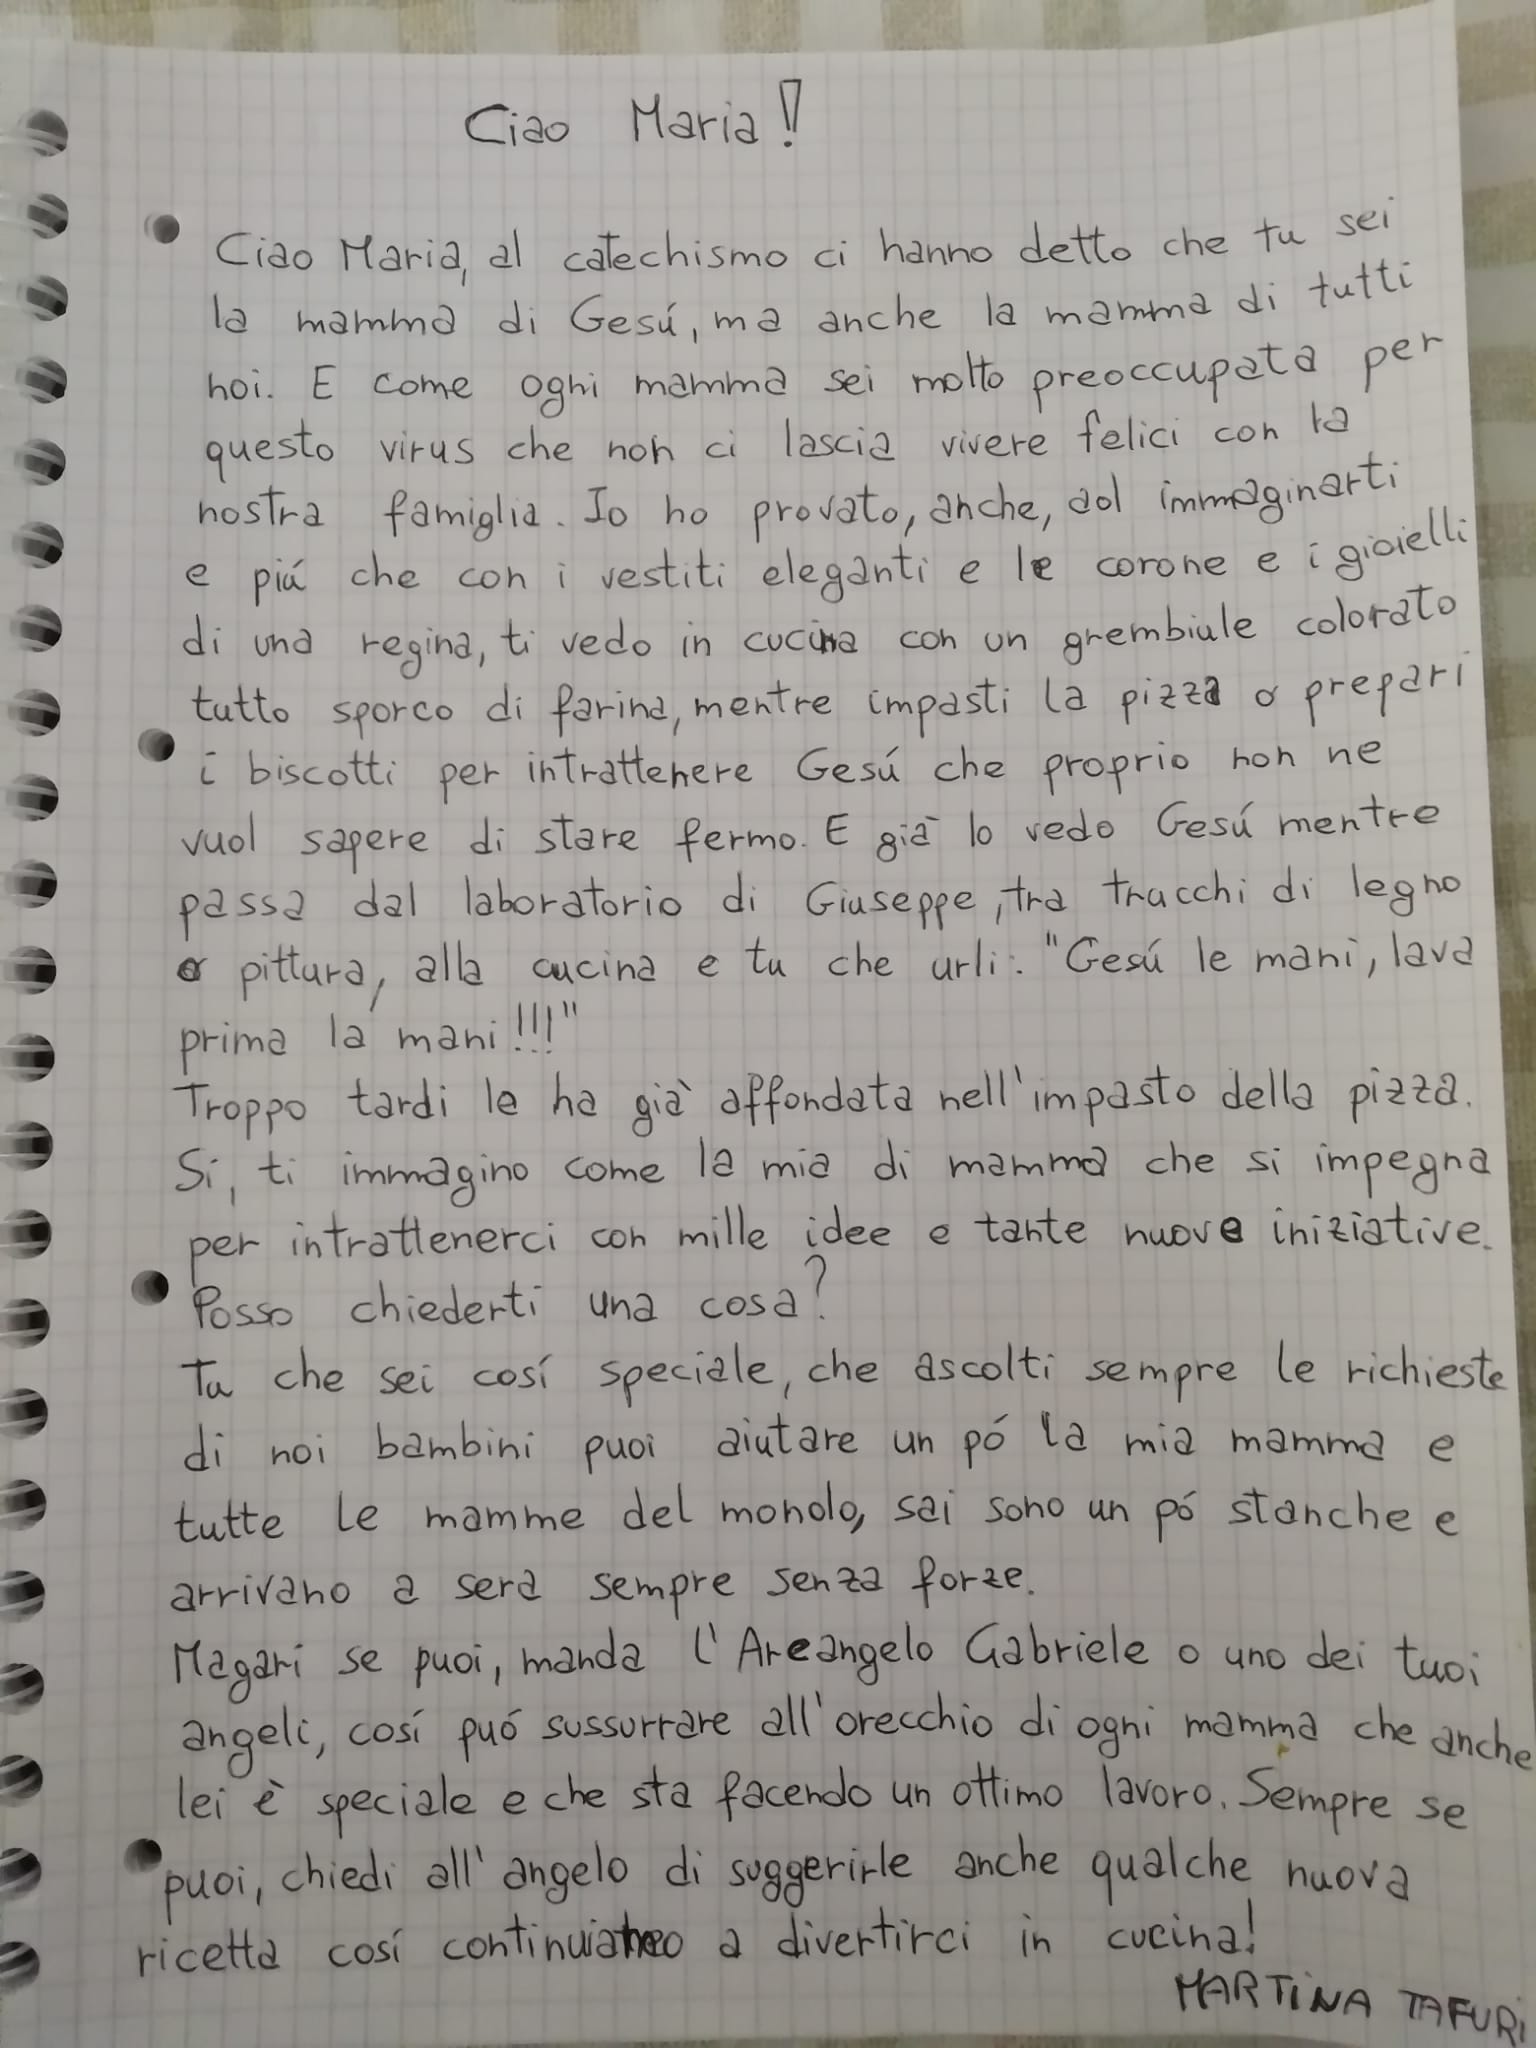 Ciao Maria!
Ciao Maria, al catechismo ci hanno detto che tu sei
la mamma di Gesú, ma anche la mamma di tutti
noi. E come ogni mamma sei molto preoccupata per
questo virus che non ci lascia vivere felici con la
nostra famiglia. Io ho provato, anche, ad immaginarti
e piú che con i vestiti eleganti e le corone e i gioielli
di una regina, ti vedo in cucina con un grembiule colorato
tutto sporco di farina, mentre impasti la pizza o prepari
i biscotti per intrattenere Gesú che proprio non ne
vuol sapere di stare fermo. E già lo vedo Gesú mentre
passa dal laboratorio di Giuseppe, tra trucchi di legno
o pittura, alla cucina e tu che urli: "Gesú le mani, lava
prima la mani!!!"
Troppo tardi le ha già affondata nell'impasto della pizza.
Si, ti immagino come la mia di mamma che si impegna
per intrattenerci con mille idee e tante nuove iniziative.
Posso chiederti una cosa?
Tu che sei cosí speciale, che ascolti sempre le richieste
di noi bambini puoi aiutare un pó la mia mamma e
tutte le mamme del mondo, sai sono un pó stanche e
arrivano a sera sempre senza forze.
Magari se puoi, manda l'Arcangelo Gabriele o uno dei tuoi
angeli, cosí puó sussurrare all'orecchio di ogni mamma che anche
lei è speciale e che sta facendo un ottimo lavoro. Sempre se
puoi, chiedi all'angelo di suggerirle anche qualche nuova
ricetta cosí continuiamo a divertirci in cucina!
MARTINA TAFURI